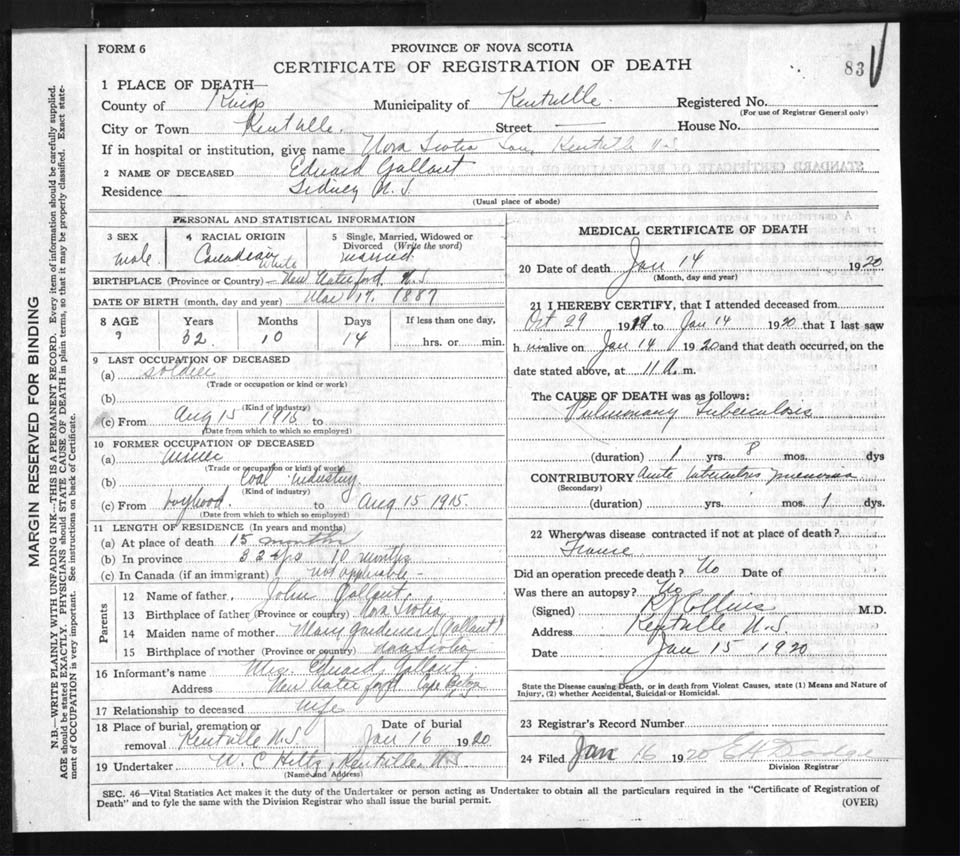 FORM 6
PROVINCE OF NOVA SCOTIA
CERTIFICATE OF REGISTRATION OF DEATH
83
1 PLACE OF DEATH—
County of Kings Municipality of Kentville. Registered No.
(For use of Registrar General only)
City or Town Kentville. Street — House No.
If in hospital or institution, give name Nova Scotia San, Kentville N.S
2 NAME OF DECEASED Eduard Gallant
Residence Sidney N.S.
(Usual place of abode)
PERSONAL AND STATISTICAL INFORMATION
3 SEX
male
4 RACIAL ORIGIN
Canadian
White
5 Single, Married, Widowed or Divorced (Write the word)
married
BIRTHPLACE (Province or Country)— New Waterford N.S
DATE OF BIRTH (month, day and year) Mar 17. 1887
8 AGE Years Months Days If less than one day,
? 32. 10 14 hrs. or min.
9 LAST OCCUPATION OF DECEASED
(a) Soldier
(Trade or occupation or kind or work)
(b)
(Kind of industry)
(c) From Aug 15 1915 to
(Date from which to which so employed)
10 FORMER OCCUPATION OF DECEASED
(a) miner
(Trade or occupation or kind of work)
(b) Coal industry.
(Kind of industry)
(c) From boyhood. to Aug 15 1915.
(Date from which to which so employed)
11 LENGTH OF RESIDENCE (In years and months)
(a) At place of death 15 months
(b) In province 32 yrs 10 months
(c) In Canada (if an immigrant) not applicable -
Parents
12 Name of father, John Gallant
13 Birthplace of father (Province or country) Nova Scotia
14 Maiden name of mother. Mary Gardener (Gallant)
15 Birthplace of mother (Province or country) Nova Scotia
16 Informant's name Mrs. Eduard Gallant
Address New Waterford Cape Breton
17 Relationship to deceased wife
18 Place of burial, cremation or removal Kentville N.S Date of burial Jan 16 1920
19 Undertaker W. C Hiltz, Kentville N.S
(Name and Address)
MEDICAL CERTIFICATE OF DEATH
20 Date of death Jan 14 1920
(Month, day and year)
21 I HEREBY CERTIFY, that I attended deceased from
Oct 29 1919 to Jan 14 1920 that I last saw
h im alive on Jan 14 1920 and that death occurred, on the
date stated above, at 11 A. m.
The CAUSE OF DEATH was as follows:
Pulmonary Tuberculosis
(duration) 1 yrs. 8 mos. dys
CONTRIBUTORY Acute tuberculous pneumonia
(Secondary)
(duration) yrs. mos. 1 dys.
22 Where was disease contracted if not at place of death?
France
Did an operation precede death? No Date of
Was there an autopsy? No
(Signed) Collins M.D.
Address Kentville N.S.
Date Jan 15 1920
State the Disease causing Death, or in death from Violent Causes, state (1) Means and Nature of
Injury, (2) whether Accidental, Suicidal or Homicidal.
23 Registrar's Record Number
24 Filed Jan 16 1920 Dodge
Division Registrar
SEC. 46—Vital Statistics Act makes it the duty of the Undertaker or person acting as Undertaker to obtain all the particulars required in the "Certificate of Registration of
Death" and to fyle the same with the Division Registrar who shall issue the burial permit. (OVER)
MARGIN RESERVED FOR BINDING
N.B.—WRITE PLAINLY WITH UNFADING INK—THIS IS A PERMANENT RECORD. Every item of information should be carefully supplied.
AGE should be stated EXACTLY. PHYSICIANS should STATE CAUSE OF DEATH in plain terms, so that it may be properly classified. Exact state-
ment of OCCUPATION is very important. See instructions on back of Certificate.